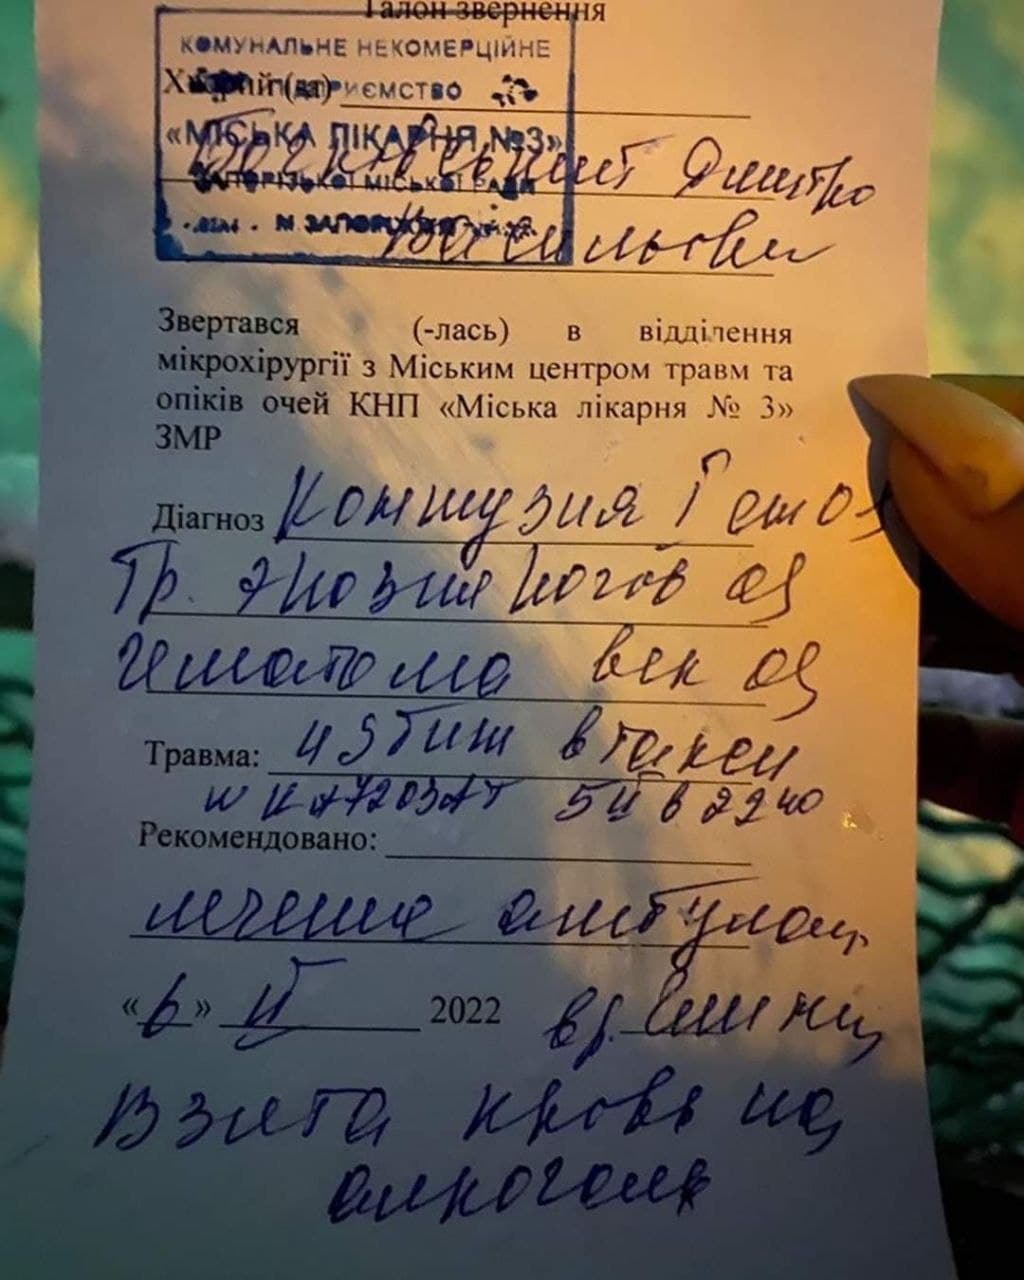 Талон звернення
КОМУНАЛЬНЕ НЕКОМЕРЦІЙНЕ
Хворий (а) ПІДПРИЄМСТВО
«МІСЬКА ЛІКАРНЯ №3»
Дмитро
ЗАПОРІЗЬКОЇ МІСЬКОЇ РАДИ
М. ЗАПОРІЖЖЯ
Васильови
Звертався (-лась) в відділення
мікрохірургії з Міським центром травм та
опіків очей КНП «Міська лікарня № 3»
ЗМР
Діагноз Контузия I
Тр. эрозия
Гематома век
Травма: избит в такси
5 II в 22 40
Рекомендовано:
лечение амбулат.
«6» II 2022 вр.
Взята кровь на
алкоголь